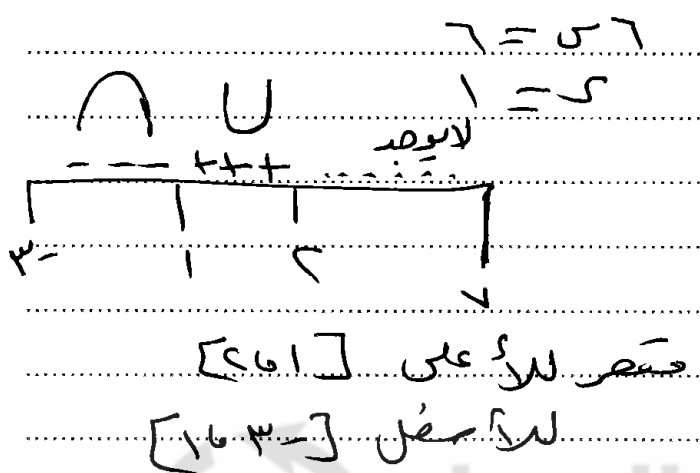 ٦س = ٦
س = ١
لا يوجد
--- +++
-٣ ١ ٢ ٧
مقعر للأعلى [١،٢]
للأسفل [-٣،١]